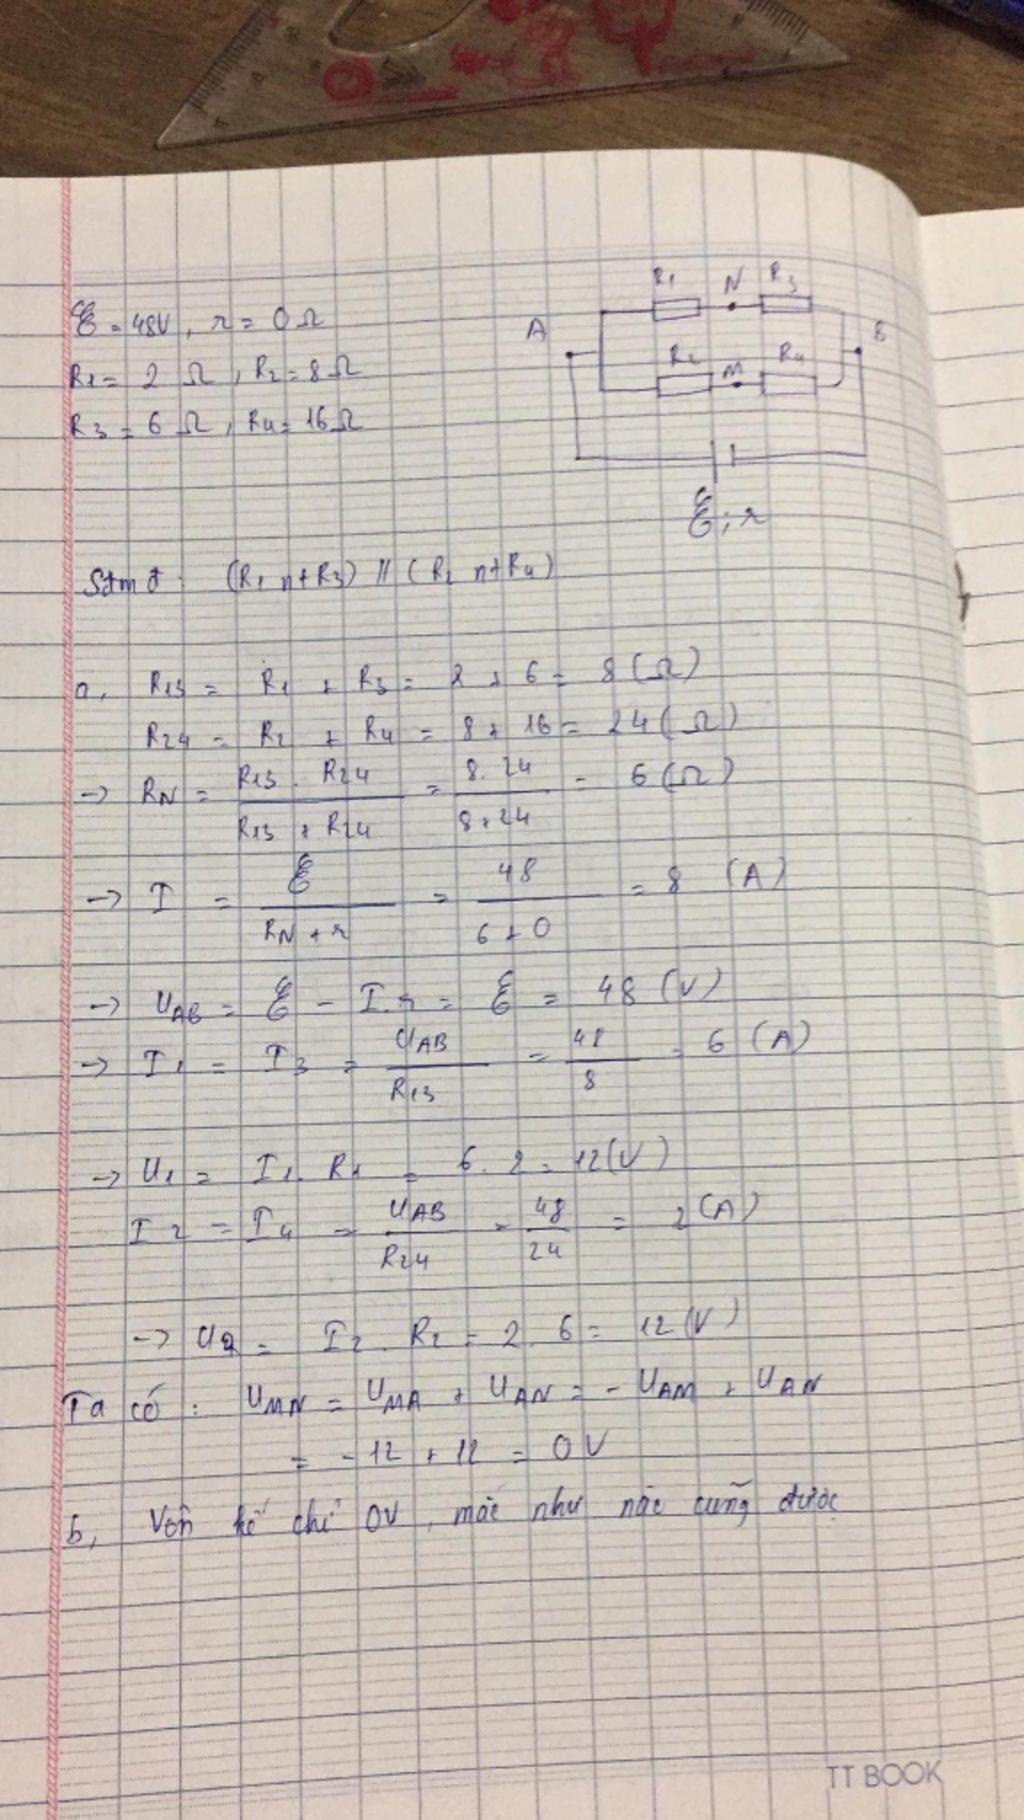 R1 N R3
ℰ = 48V, r = 0Ω
A B
R1 = 2 Ω, R2 = 8Ω
R2 M R4
R3 = 6 Ω, R4 = 16Ω
ℰ; r
Sđmđ: (R1 nt R3) // (R2 nt R4)
a, R13 = R1 + R3 = 2 + 6 = 8 (Ω)
R24 = R2 + R4 = 8 + 16 = 24 (Ω)
-> RN = R13 . R24 / R13 + R24 = 8.24 / 8+24 = 6 (Ω)
-> I = ℰ / RN + r = 48 / 6 + 0 = 8 (A)
-> UAB = ℰ - I.r = ℰ = 48 (V)
-> I1 = I3 = UAB / R13 = 48 / 8 = 6 (A)
-> U1 = I1. R1 = 6. 2 = 12 (V)
I2 = I4 = UAB / R24 = 48 / 24 = 2 (A)
-> U2 = I2 . R2 = 2 . 6 = 12 (V)
Ta có : UMN = UMA + UAN = - UAM + UAN
= -12 + 12 = 0 V
b, Vôn kế chỉ 0V, mắc như nào cũng được
TT BOOK